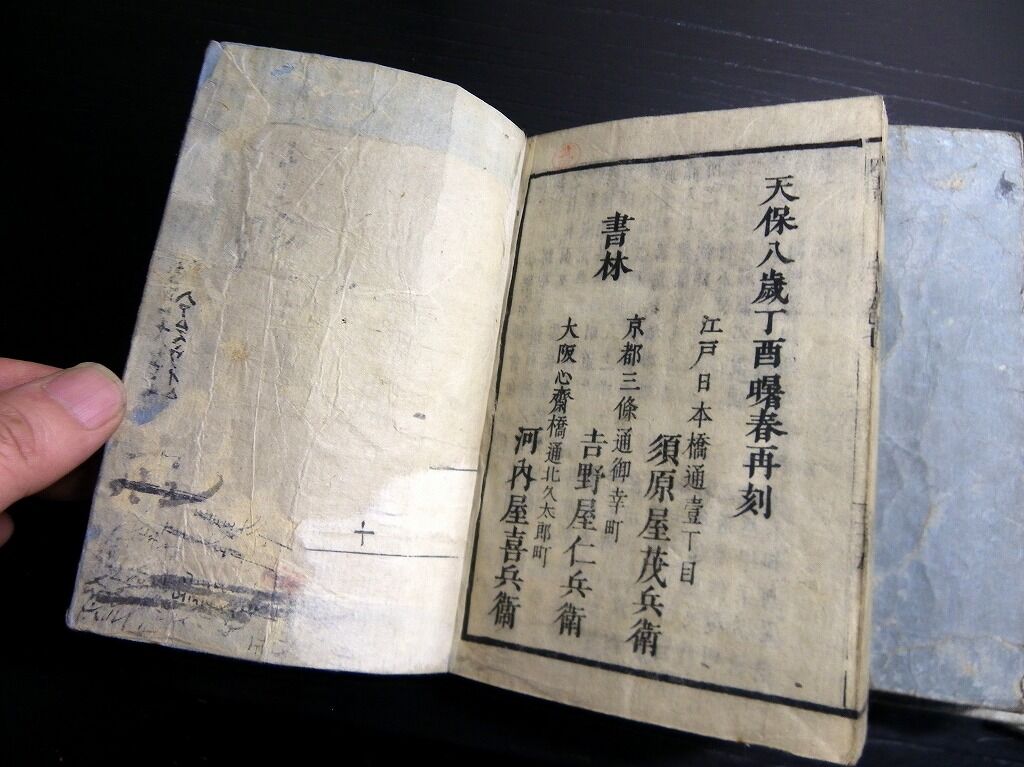 天保八歳丁酉曙春再刻
江戸日本橋通壹丁目
須原屋茂兵衛
京都三條通御幸町
書林
吉野屋仁兵衛
大阪心齋橋通北久太郎町
河内屋喜兵衛
十